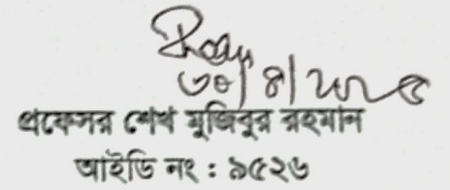 ৩০/৪/২০২৫
প্রফেসর শেখ মুজিবুর রহমান
আইডি নং : ৯৫২৬